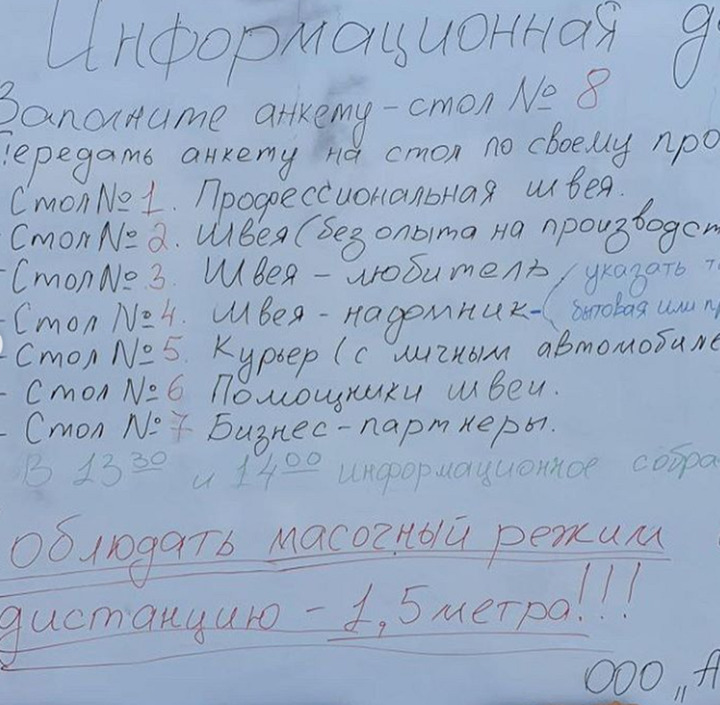 Информационная
Заполните анкету - стол № 8
Передать анкету на стол по своему
Стол № 1. Профессиональная швея.
- Стол № 2. Швея (без опыта на производст
- Стол № 3. Швея - любитель (указать
- Стол № 4. Швея - надомник - (бытовая или
- Стол № 5. Курьер (с личным автомобиле
- Стол № 6 Помощники швеи.
- Стол № 7 Бизнес-партнеры.
В 13 30 и 14 00 информационное собра
облюдать масочный режим
дистанцию - 1,5 метра!!!
ООО „А